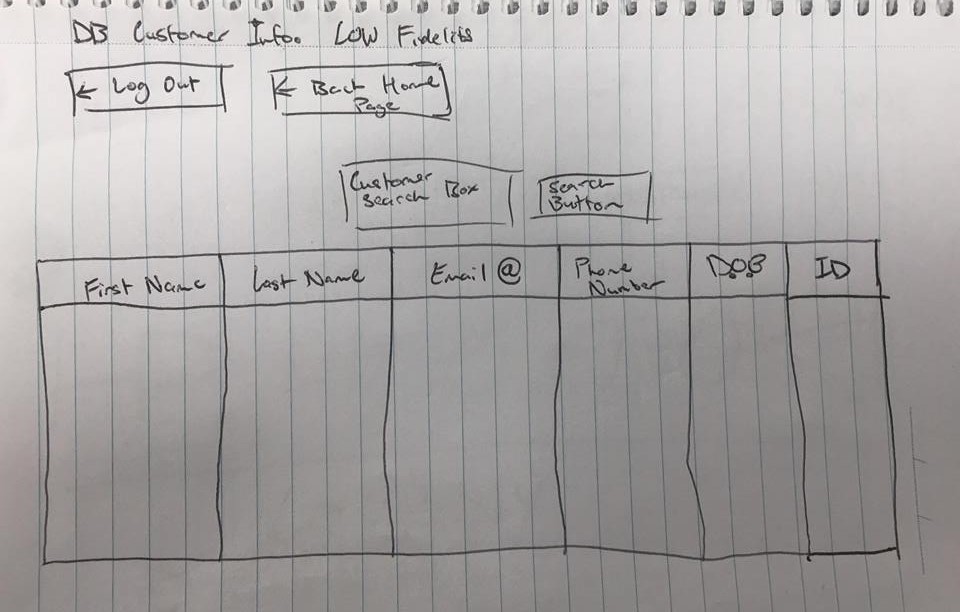 DB Customer Info. LOW Fidelity
← Log Out
← Back Home
Page
Customer
Search Box
Search
Button
First Name
Last Name
Email @
Phone
Number
D.O.B
ID